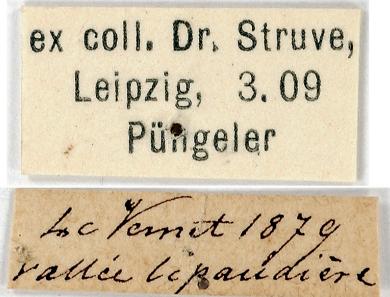 ex coll. Dr. Struve,
Leipzig, 3.09
Püngeler
Le Vernet 1879
vallée